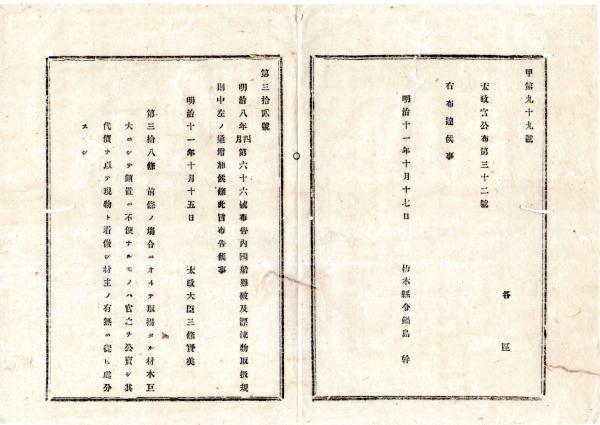 甲第九十九號
各區
太政官公布第三十二號
右布達候事
明治十一年十月十七日
栃木縣令鍋島幹
第三拾貳號
明治八年四月第六十六號布告內國船難破及漂流物取扱規
則中左ノ通增加候條此旨布告候事
明治十一年十月十五日
太政大臣三條實美
第三拾八條 前條ノ場合ニオイテ取揚タル材木巨
大ニシテ領置ニ不便ナルモノハ官之ヲ公賣シ其
代價ヲ以テ現物ト看做シ材主ノ有無ニ從ヒ處分
スベシ